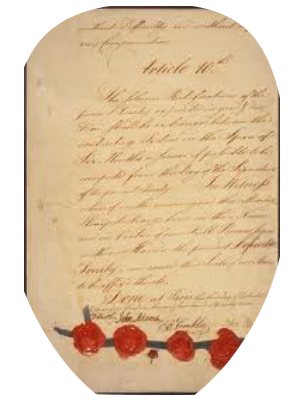 without Difficulty and without
any Compensation.
Article 10th.
The solemn Ratifications of the
present Treaty expedited in good & due
Form shall be exchanged between the
contracting Parties in the Space of
Six Months or sooner if possible to be
computed from the Day of the Signature
of the present Treaty. In Witness
whereof we the undersigned their
have in their Name
and in Virtue of our Full Powers signed
with our Hands the present Definitive
Treaty, and caused the Seals of our Arms
to be affix'd thereto.
Done at Paris, this third day of
Hartley John Adams B Franklin